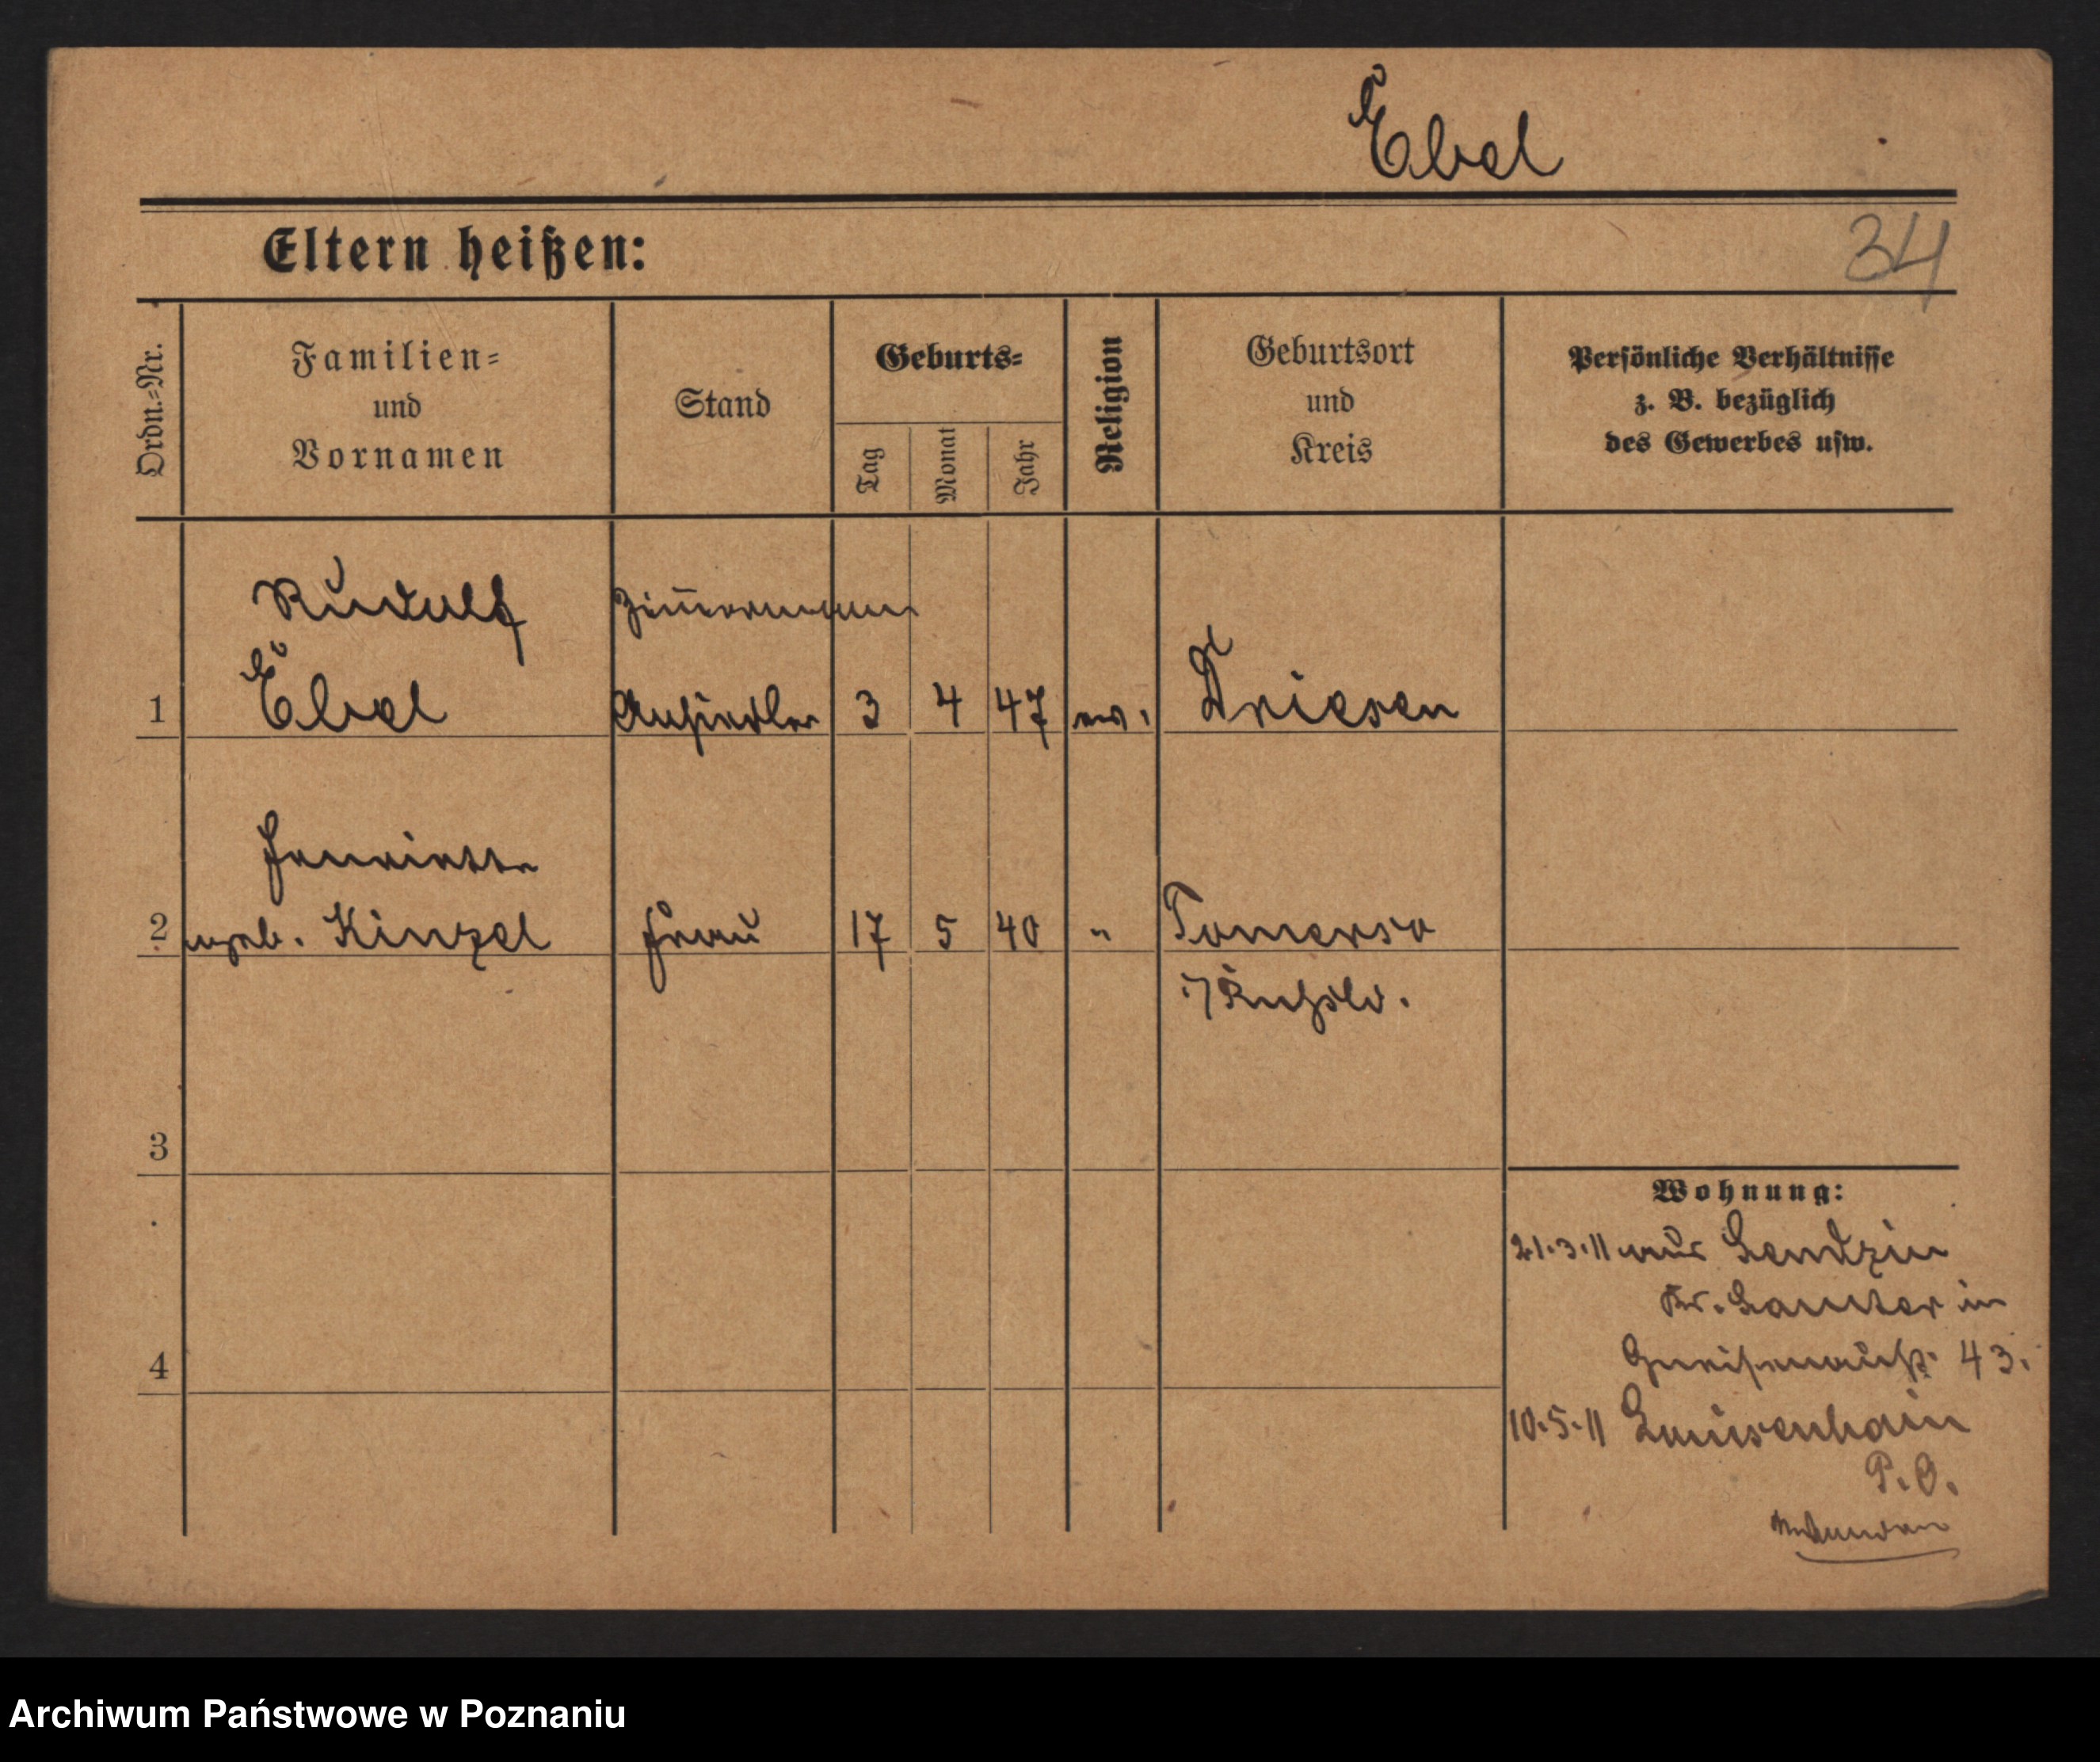 Ebel
Eltern heißen:
34
Ordn.-Nr.
Familien-
und
Vornamen
Stand
Geburts-
Tag
Monat
Jahr
Religion
Geburtsort
und
Kreis
Persönliche Verhältnisse
z. B. bezüglich
des Gewerbes usw.
Rudolf Zim̄ermann
1 Ebel Ansiedler 3 4 47 ev. Driesen
Henriette
2 geb. Kinzel Frau 17 5 40 " Tomerso
i/ Rußld.
3
Wohnung:
21.3.11 aus
Kr. Samter in
4 Gneisenaustr. 43.
10.5.11 Luisenhain
P. O.